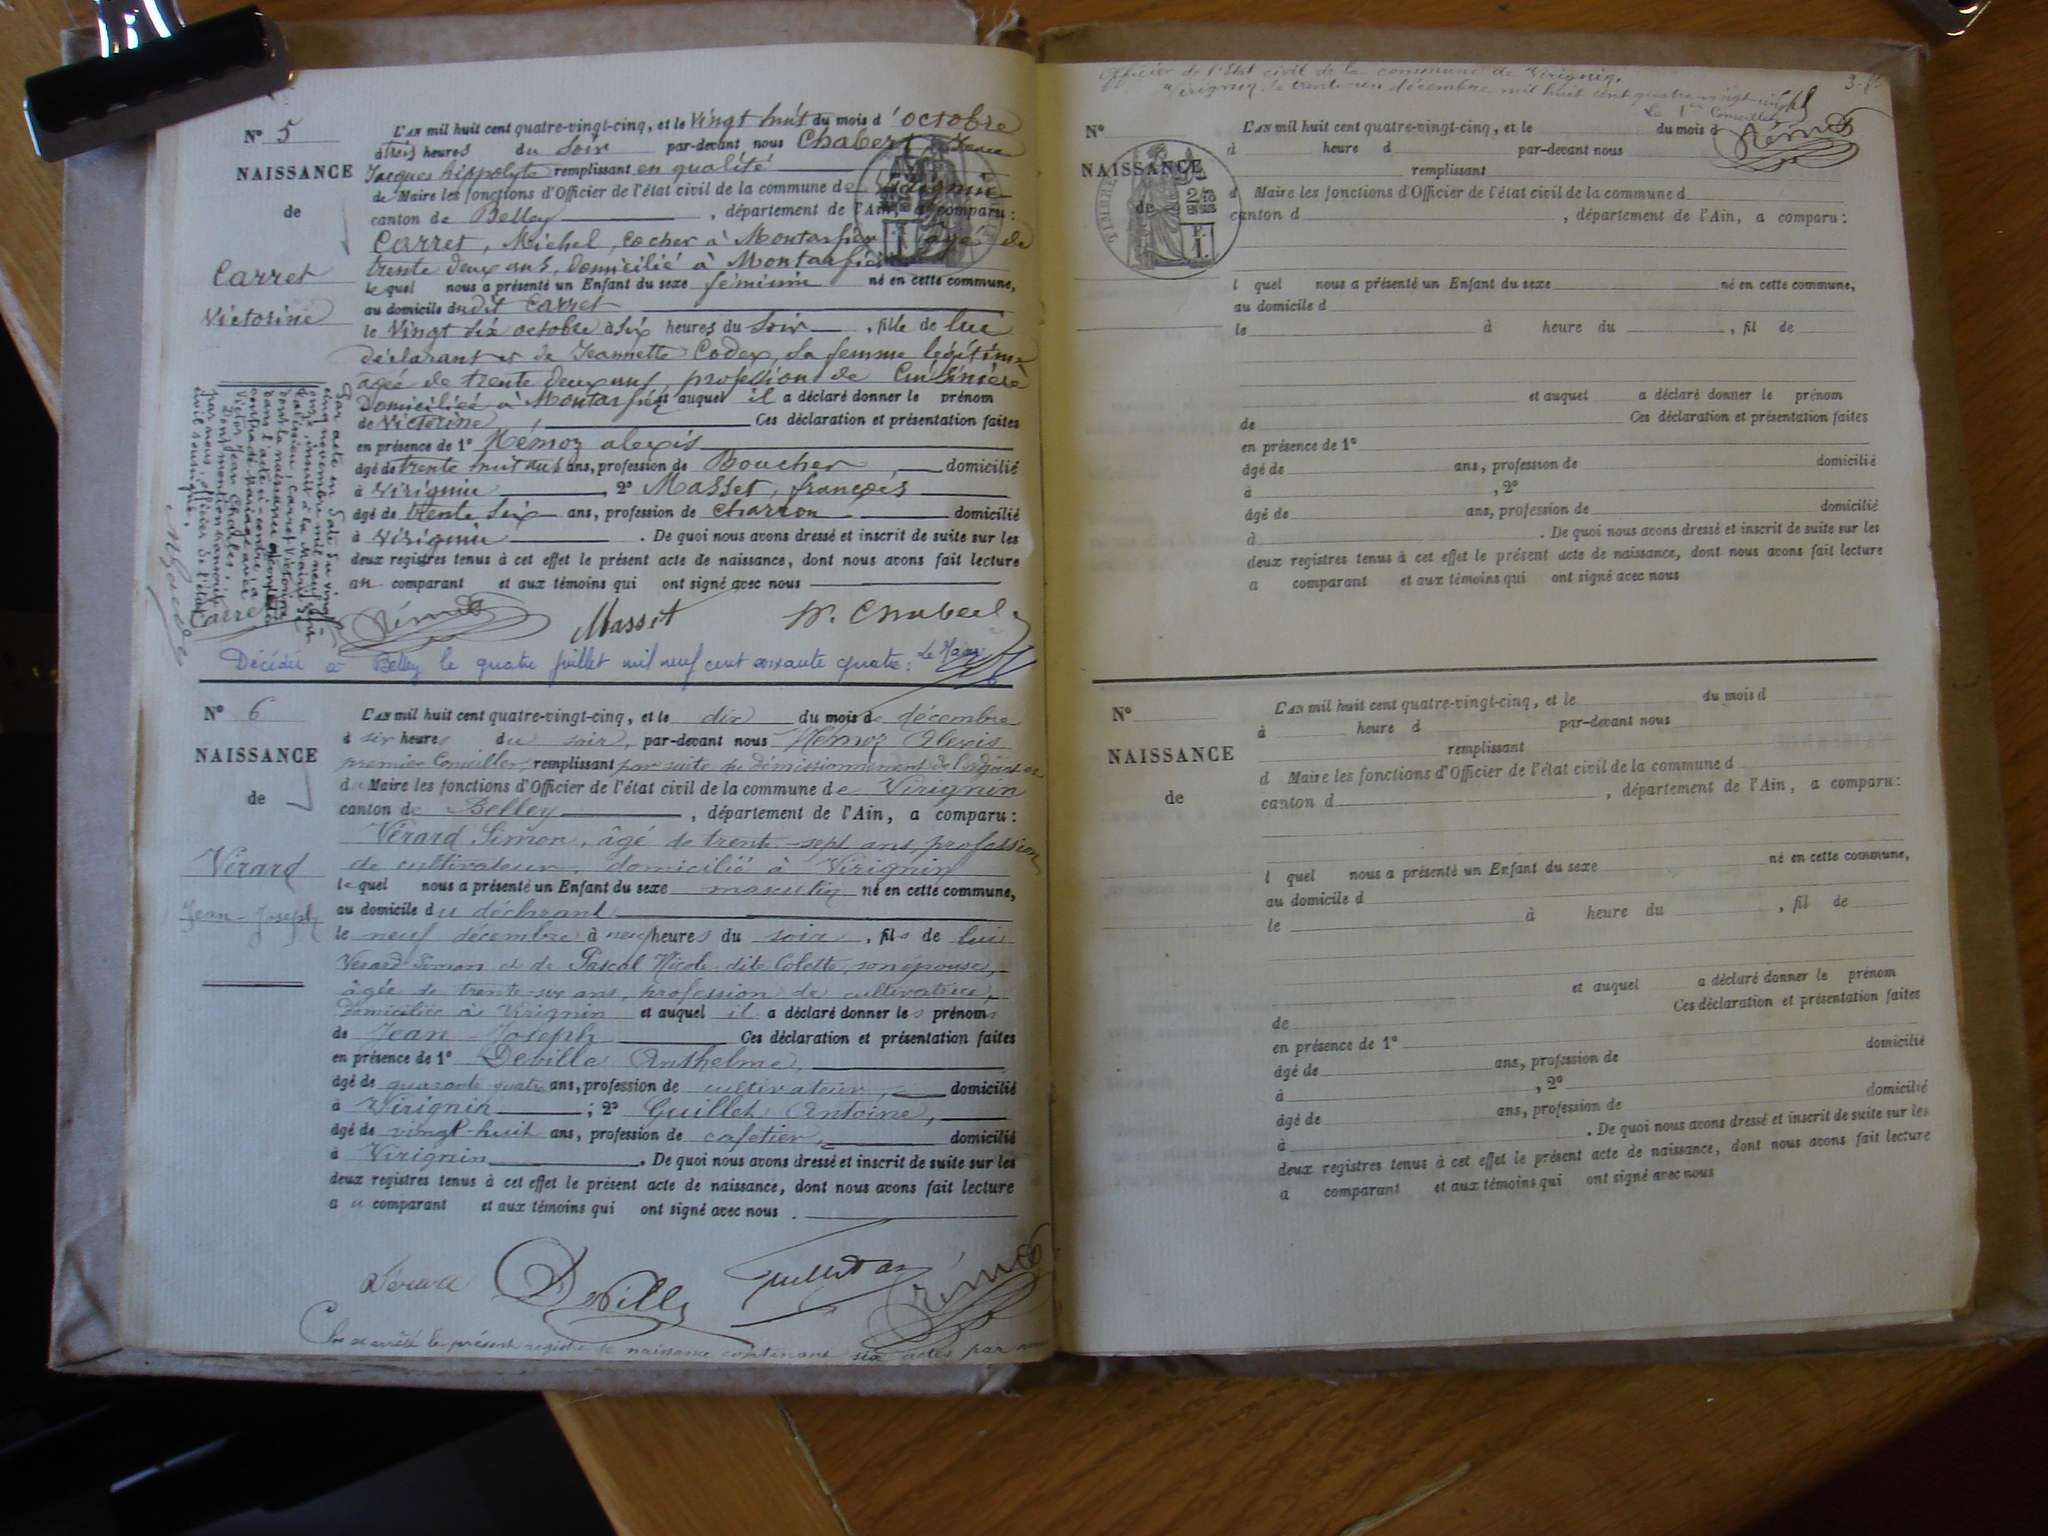 N° 5
NAISSANCE
de
Carret
Victorine
L'AN mil huit cent quatre-vingt-cinq, et le Vingt huit du mois d'octobre
à trois heures du soir par-devant nous Chabert
Jacques hippolyte remplissant en qualité
de Maire les fonctions d'Officier de l'état civil de la commune de Virignin
canton de Belley, département de l'Ain, a comparu:
Carret, Michel, cocher à Montarfier agé de
trente deux ans, domicilié à Montarfier
lequel nous a présenté un Enfant du sexe féminin né en cette commune,
au domicile dudit Carret
le Vingt six octobre à six heures du soir, fille de lui
déclarant et de Jeannette Codex, sa femme légitime
agée de trente deux ans, profession de Cuisinière
Domiciliée à Montarfier et auquel il a déclaré donner le prénom
de Victorine Ces déclaration et présentation faites
en présence de 1° Rémoz alexis
âgé de trente huit ans ans, profession de Boucher, domicilié
à Virignin, 2° Masset, françois
âgé de trente six ans, profession de charron domicilié
à Virignin. De quoi nous avons dressé et inscrit de suite sur les
deux registres tenus à cet effet le présent acte de naissance, dont nous avons fait lecture
au comparant et aux témoins qui ont signé avec nous
Par acte en date du vingt
cinq novembre mil neuf cent
onze, inscrit à la Mairie de
Carret Victorine
dont la naissance est constatée
dans l'acte ci-contre, a
contracté mariage avec
Victor Jean Charles.
Dont mention transcrite
par nous, officier de l'état
civil soussigné.
Carret Rémoz Masset H. Chabert
Décédée à Belley le quatre juillet mil neuf cent soixante quatre: Le Maire
N° 6
NAISSANCE
de
Vérard
Jean-Joseph
L'AN mil huit cent quatre-vingt-cinq, et le dix du mois de décembre
à six heures du soir, par-devant nous Rémoz Alexis
premier Conseiller, remplissant par suite du démissionnement de l'adjoint et
du Maire les fonctions d'Officier de l'état civil de la commune de Virignin
canton de Belley, département de l'Ain, a comparu:
Vérard Simon, âgé de trente-sept ans, profession
de cultivateur, domicilié à Virignin
lequel nous a présenté un Enfant du sexe masculin né en cette commune,
au domicile du déclarant
le neuf décembre à neuf heures du soir, fils de lui
Vérard Simon et de Pascal Nicole dite Colette, son épouse,
âgée de trente-six ans, profession de cultivatrice,
domiciliée à Virignin et auquel il a déclaré donner les prénoms
de Jean Joseph Ces déclaration et présentation faites
en présence de 1° Deville Anthelme,
âgé de quarante quatre ans, profession de cultivateur, domicilié
à Virignin; 2° Guillet Antoine,
âgé de vingt-huit ans, profession de cafetier, domicilié
à Virignin. De quoi nous avons dressé et inscrit de suite sur les
deux registres tenus à cet effet le présent acte de naissance, dont nous avons fait lecture
au comparant et aux témoins qui ont signé avec nous.
Deville Rémoz
Clos et arrêté le présent registre de naissance contenant six actes par nous
Officier de l'Etat civil de la commune de Virignin.
Virignin le trente-un décembre mil huit cent quatre-vingt-cinq
Le 1er Conseiller
Rémoz
N°
NAISSANCE
de
TIMBRE
2/10
EN SUS
1 F.
L'AN mil huit cent quatre-vingt-cinq, et le du mois d
à heure d par-devant nous
remplissant
d Maire les fonctions d'Officier de l'état civil de la commune d
canton d, département de l'Ain, a comparu:
l quel nous a présenté un Enfant du sexe né en cette commune,
au domicile d
le à heure du, fil de
et auquel a déclaré donner le prénom
de Ces déclaration et présentation faites
en présence de 1°
âgé de ans, profession de domicilié
à, 2°
âgé de ans, profession de domicilié
à. De quoi nous avons dressé et inscrit de suite sur les
deux registres tenus à cet effet le présent acte de naissance, dont nous avons fait lecture
a comparant et aux témoins qui ont signé avec nous
N°
NAISSANCE
de
L'AN mil huit cent quatre-vingt-cinq, et le du mois d
à heure d par-devant nous
remplissant
d Maire les fonctions d'Officier de l'état civil de la commune d
canton d, département de l'Ain, a comparu:
l quel nous a présenté un Enfant du sexe né en cette commune,
au domicile d
le à heure du, fil de
et auquel a déclaré donner le prénom
de Ces déclaration et présentation faites
en présence de 1°
âgé de ans, profession de domicilié
à, 2°
âgé de ans, profession de domicilié
à. De quoi nous avons dressé et inscrit de suite sur les
deux registres tenus à cet effet le présent acte de naissance, dont nous avons fait lecture
a comparant et aux témoins qui ont signé avec nous